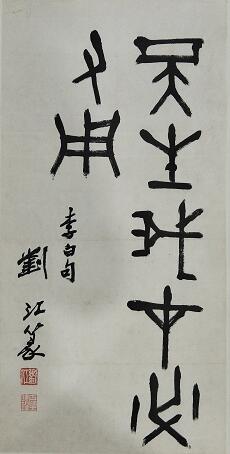 天生我材必
有用
李白句
劉江篆